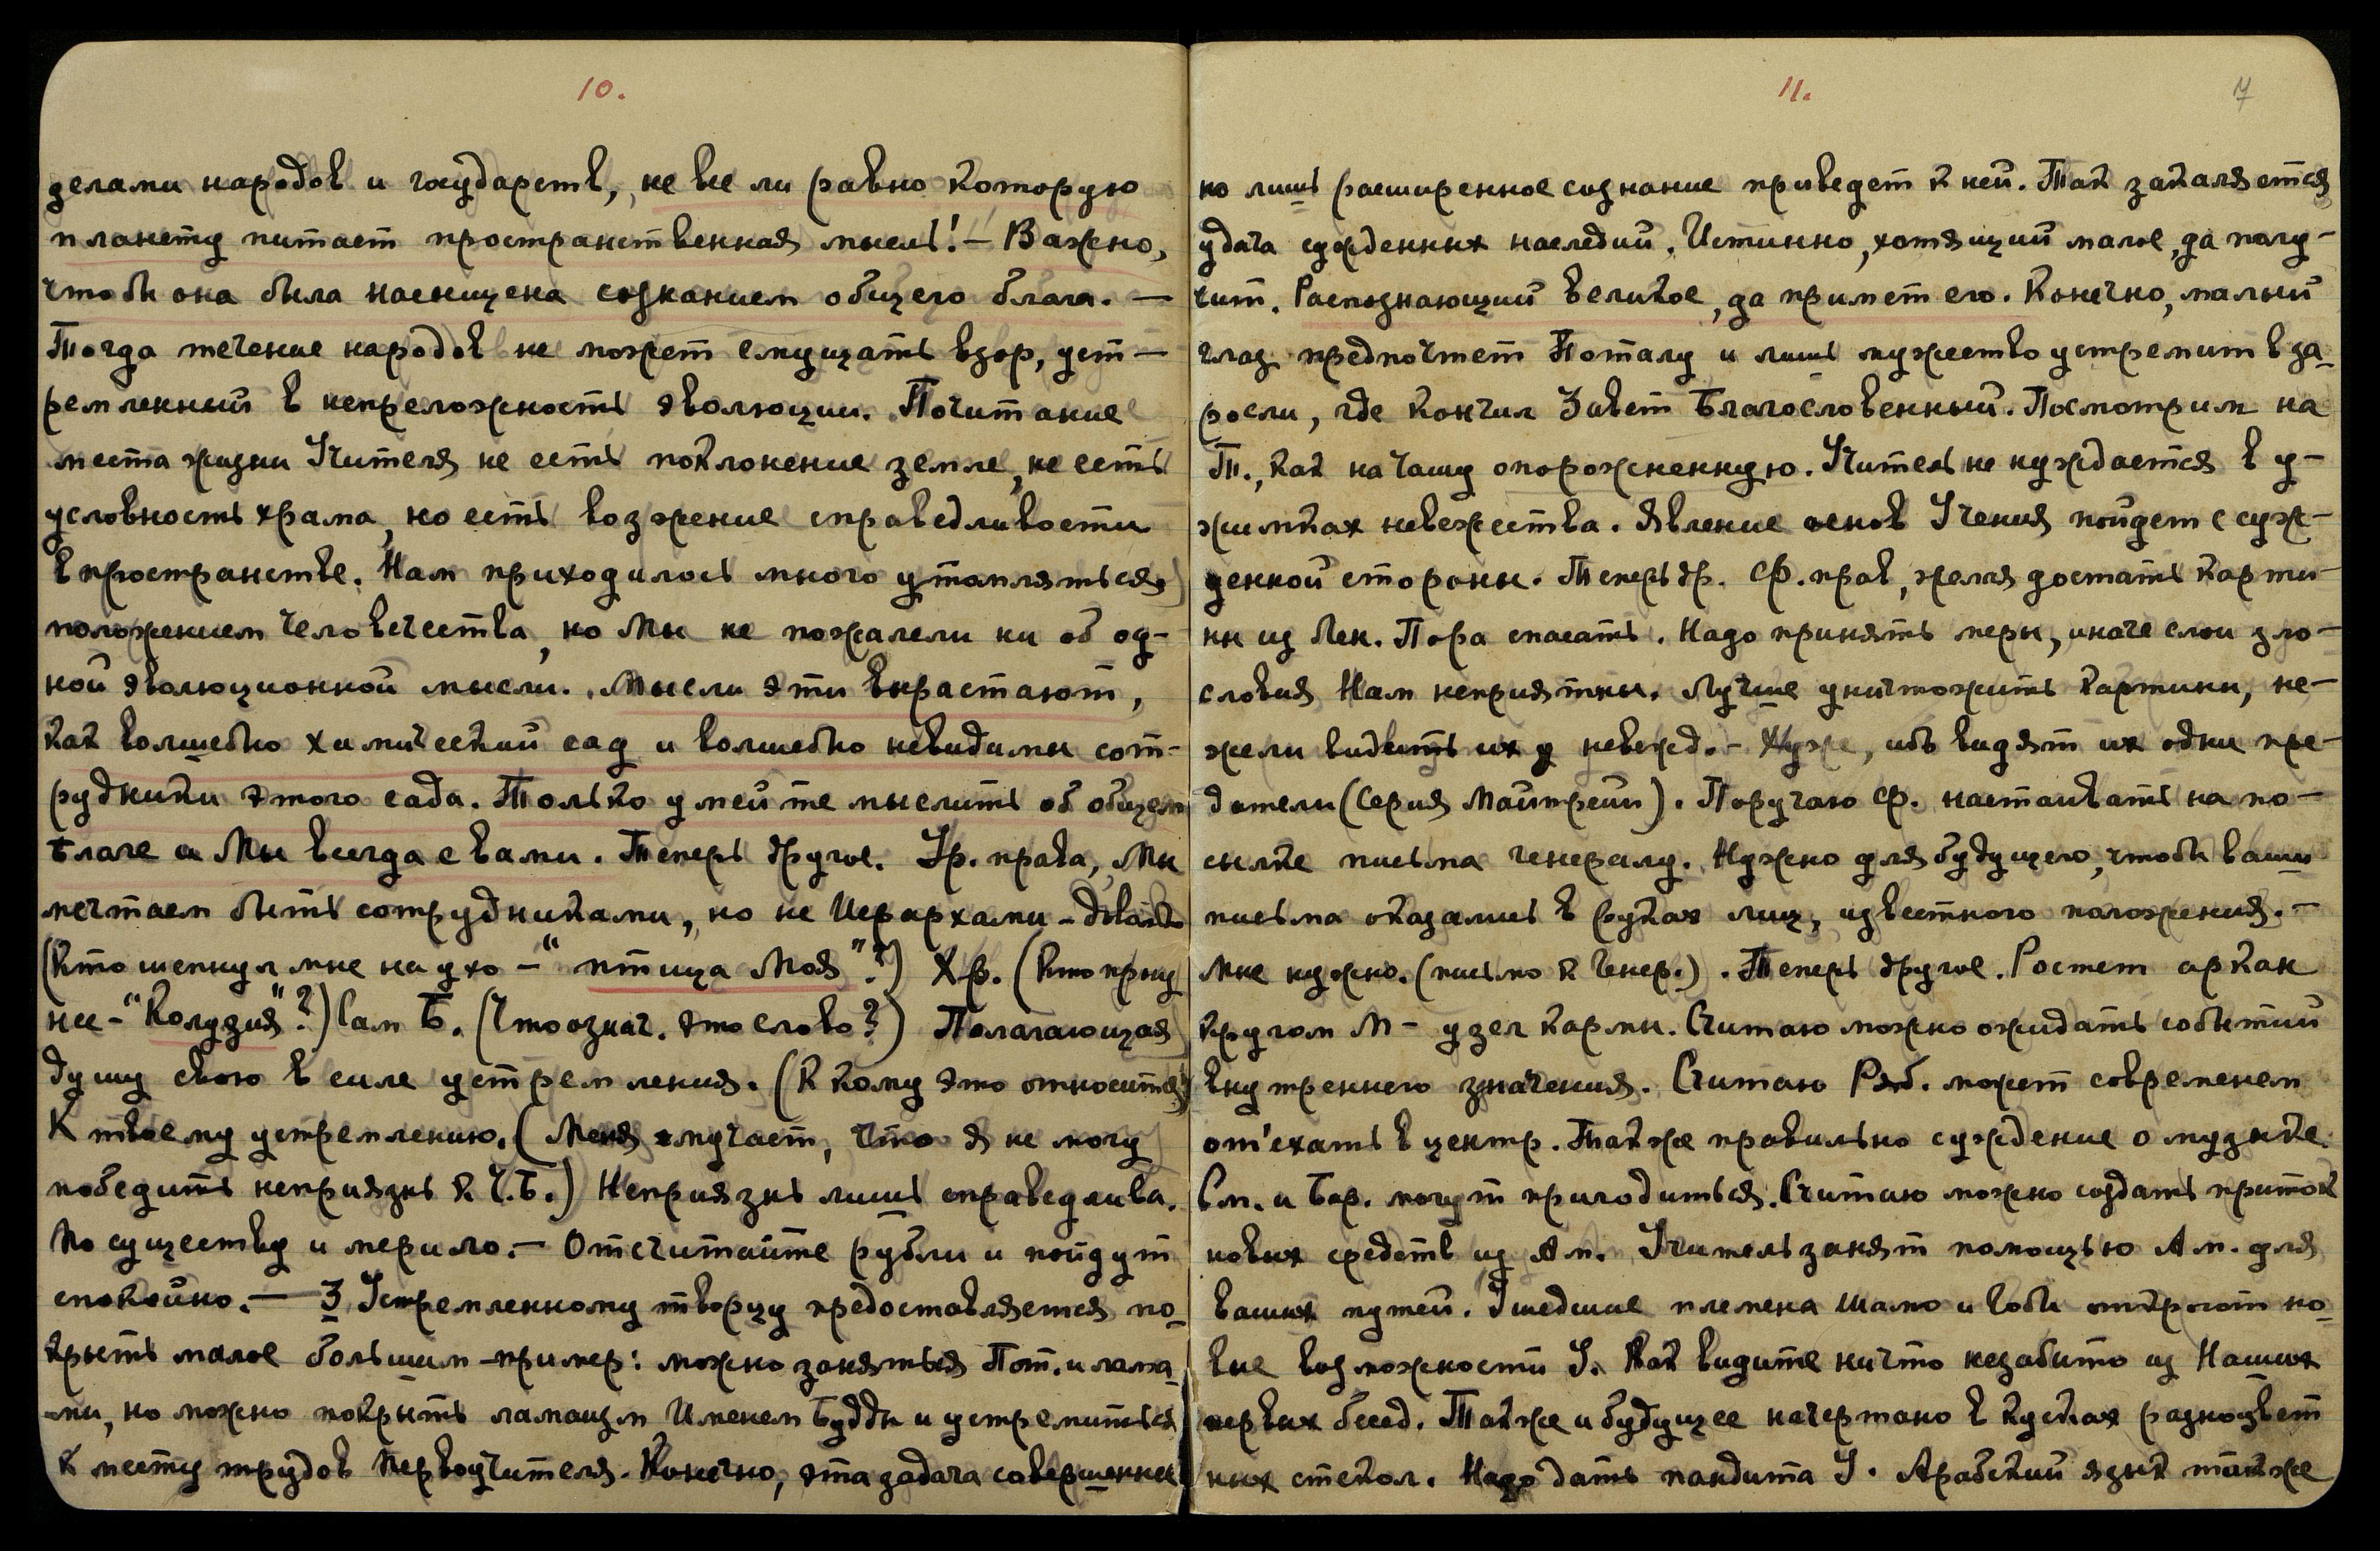 10.
делами народов и государств, не все ли равно которую
планету питает пространственная мысль! — Важно,
чтобы она была насыщена сознанием общего блага. —
Тогда течение народов не может смущать взор, уст-
ремленный в непреложность эволюции. Почитание
места жизни Учителя не есть поклонение земле, не есть
условность храма, но есть возжение справедливости
в пространстве. Нам приходилось много утомляться
положением человечества, но Мы не пожалели ни об од-
ной эволюционной мысли. Мысли эти вырастают,
как волшебно химический сад и волшебно невидимы сот-
рудники этого сада. Только умейте мыслить об общем
благе и Мы всегда с вами. Теперь другое. Ур. права, Мы
мечтаем быть сотрудниками, но не Иерархами -
(Кто шепнул мне на ухо — "птица Моя"?) Хр. (Кто
нес - "Колузия"?) Сам Б. (Что означ. это слово?) Полагающая
душу свою в силе устремления. (К кому это относится)
К твоему устремлению. (Меня мучает, что я не могу
победить неприязнь к Ч.Б.) Неприязнь лишь справедлива.
По существу и мерило. — Отсчитайте рубли и пойдут
спокойно. — 3 Устремленному творцу предоставляется по-
крыть малое большим - пример: можно заняться Пот. и лама-
ми, но можно покрыть ламаизм Именем Будды и устремиться
к месту трудов Первоучителя. Конечно, эта задача совершенна

11.
но лишь расширенное сознание приведет к ней. Так закаляется
удача сужденных наследий. Истинно, хотящий малое, да полу-
чит. Распознающий великое, да примет его. Конечно, малый
глаз предпочтет Поталу и лишь мужество устремит в за-
росли, где кончил Завет Благословенный. Посмотрим на
Т., как на чашу опорожненную. Учитель не нуждается в у-
жимках невежества. Явление основ Учения пойдет с суж-
денной стороны. Теперь др. Ф. прав, желая достать карти-
ны из Лен. Пора спасать. Надо принять меры, иначе слои зло-
словия Нам неприятны. Лучше уничтожить картины, не-
жели видеть их у невежд. - Хуже, ибо видят их одни пре-
датели (Серия Майтрейи). Поручаю Ф. настаивать на по-
сылке письма генералу. Нужно для будущего, чтобы ваши
письма оказались в руках лиц, известного положения. —
Мне нужно. (письмо к Генер.). Теперь другое. Растет аркан
кругом М - узел кармы. Считаю можно ожидать событий
внутреннего значения. Считаю Ряб. может современем
от'ехать в центр. Также правильно суждение о музыке.
См. и Бор. могут пригодиться. Считаю можно создать приток
новых средств из Ам. Учитель занят помощью Ам. для
ваших путей. Ушедшие племена Шамо и Гоби откроют но-
вые возможности У. Как видите ничто незабыто из Наших
первых бесед. Также и будущее начертано в кусках разноцвет
ных стекол. Надо дать пандита У. Арабский язык также